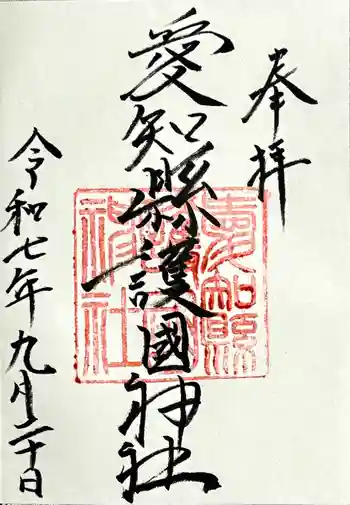 奉拝
愛知縣護國神社
愛知縣
神社
令和七年九月二十日